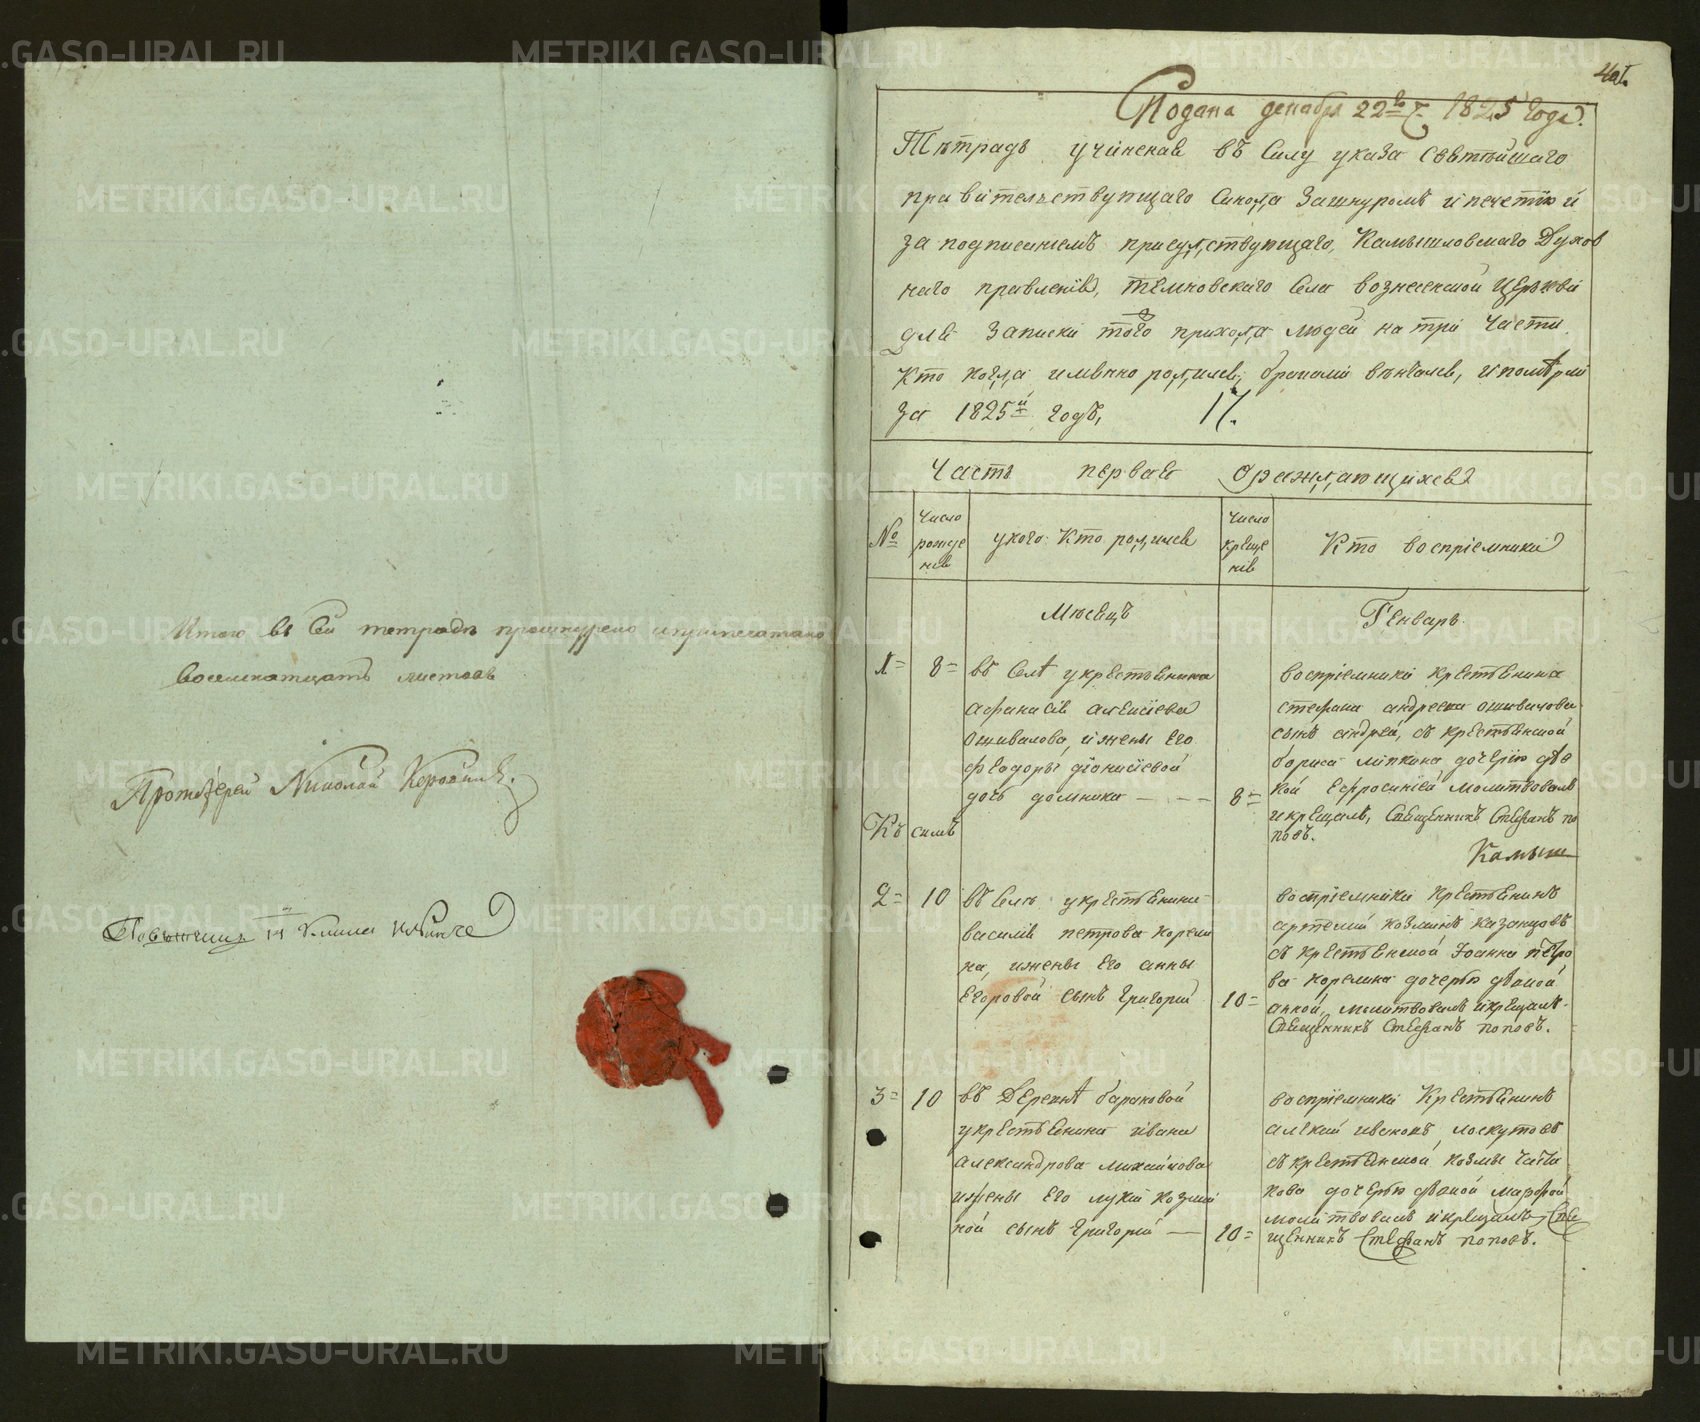 Итого въ сей тетради прошнурено и припечатано
восемнатцать листовъ
Протоіерей Николай
401.
Подана декабря 22го ч. 1825 Года.
Тѣтрадь учиненая въ Силу указа Святѣйшаго
правительствующаго Синода Зашнуромъ и печетью и
за подписаніемъ присудствующаго, Камышловскаго Духов
наго правленія, темновскаго Села вознесенской Церкви
для Записки того прихода людей на три Части
Кто когда имянно родился, браками вѣнчался, и помѣрли
за 1825й годъ, 17.
Часть первая ораждающихся
№ Число рожденія укого Кто родился Число крещенія Кто воспріемники
Месяцъ Генварь
1 = 8 = въ Селѣ укрестьянина
афанасія алексіева
Ошивалова, ижены Его
Феодоры діонисіевой
дочь домника — — —
8 =
воспріемники крестьянина
стефана андреева ошивалова
сынъ андрей, съ крестьянской
бориса липкина дочерью дѣв
кой Ефросиніей молитвовалъ
икрещалъ, Священникъ Стефанъ по
повъ.
Къ симъ
Камыш
2 = 10 въ селѣ укрестьянина
василія петрова корели
на, ижены Его анны
Егоровой сынъ Григорій
10 =
воспріемники крестьянинъ
артемій козминъ казанцовъ
съ крестьянской Іоанна петро
ва корелина дочерью дѣвкой
анной, молитвовалъ икрещалъ
Священникъ Стефанъ поповъ.
3 = 10 въ Деревнѣ бараковой
укрестьянина ивана
александрова михайлова
ижены Его лукіи козми
ной сынъ Григорій —
10 =
воспріемники Крестьянинъ
алексій ивановъ лоскутовъ
съ крестьянской козмы
дочерью дѣвкой марфой
молитвовалъ икрещалъ, Свя
щенникъ Стефанъ поповъ.
METRIKI.GASO-URAL.RU